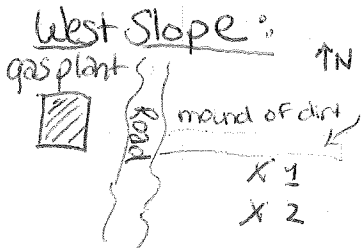 West Slope:
gas plant
↑N
Road
mound of dirt
X 1
X 2